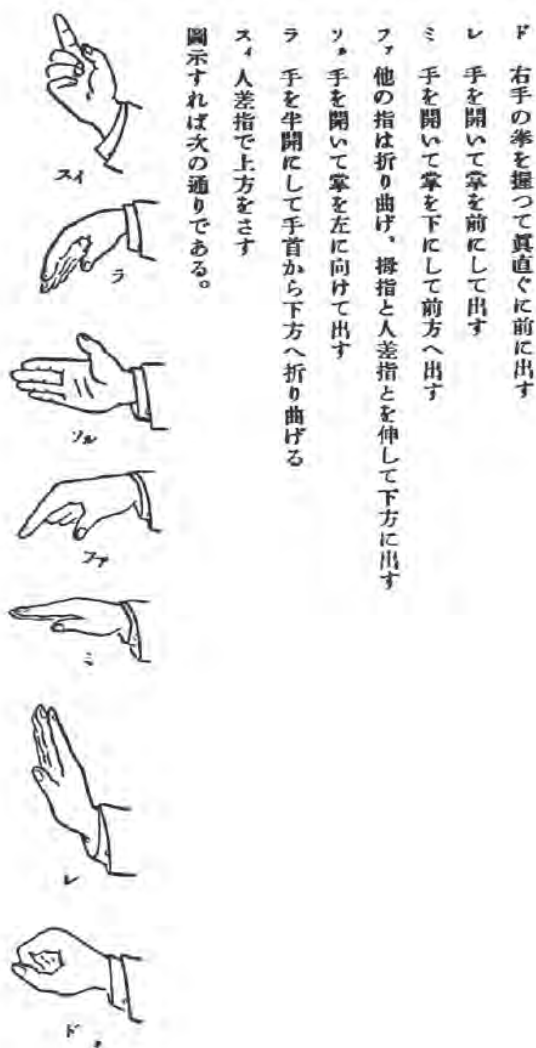 ド 右手の拳を握つて眞直ぐに前に出す
レ 手を開いて掌を前にして出す
ミ 手を開いて掌を下にして前方へ出す
ファ 他の指は折り曲げ、拇指と人差指とを伸して下方に出す
ソル 手を開いて掌を左に向けて出す
ラ 手を半開にして手首から下方へ折り曲げる
スィ 人差指で上方をさす
圖示すれば次の通りである。
スイ
ラ
ソル
ファ
ミ
レ
ド